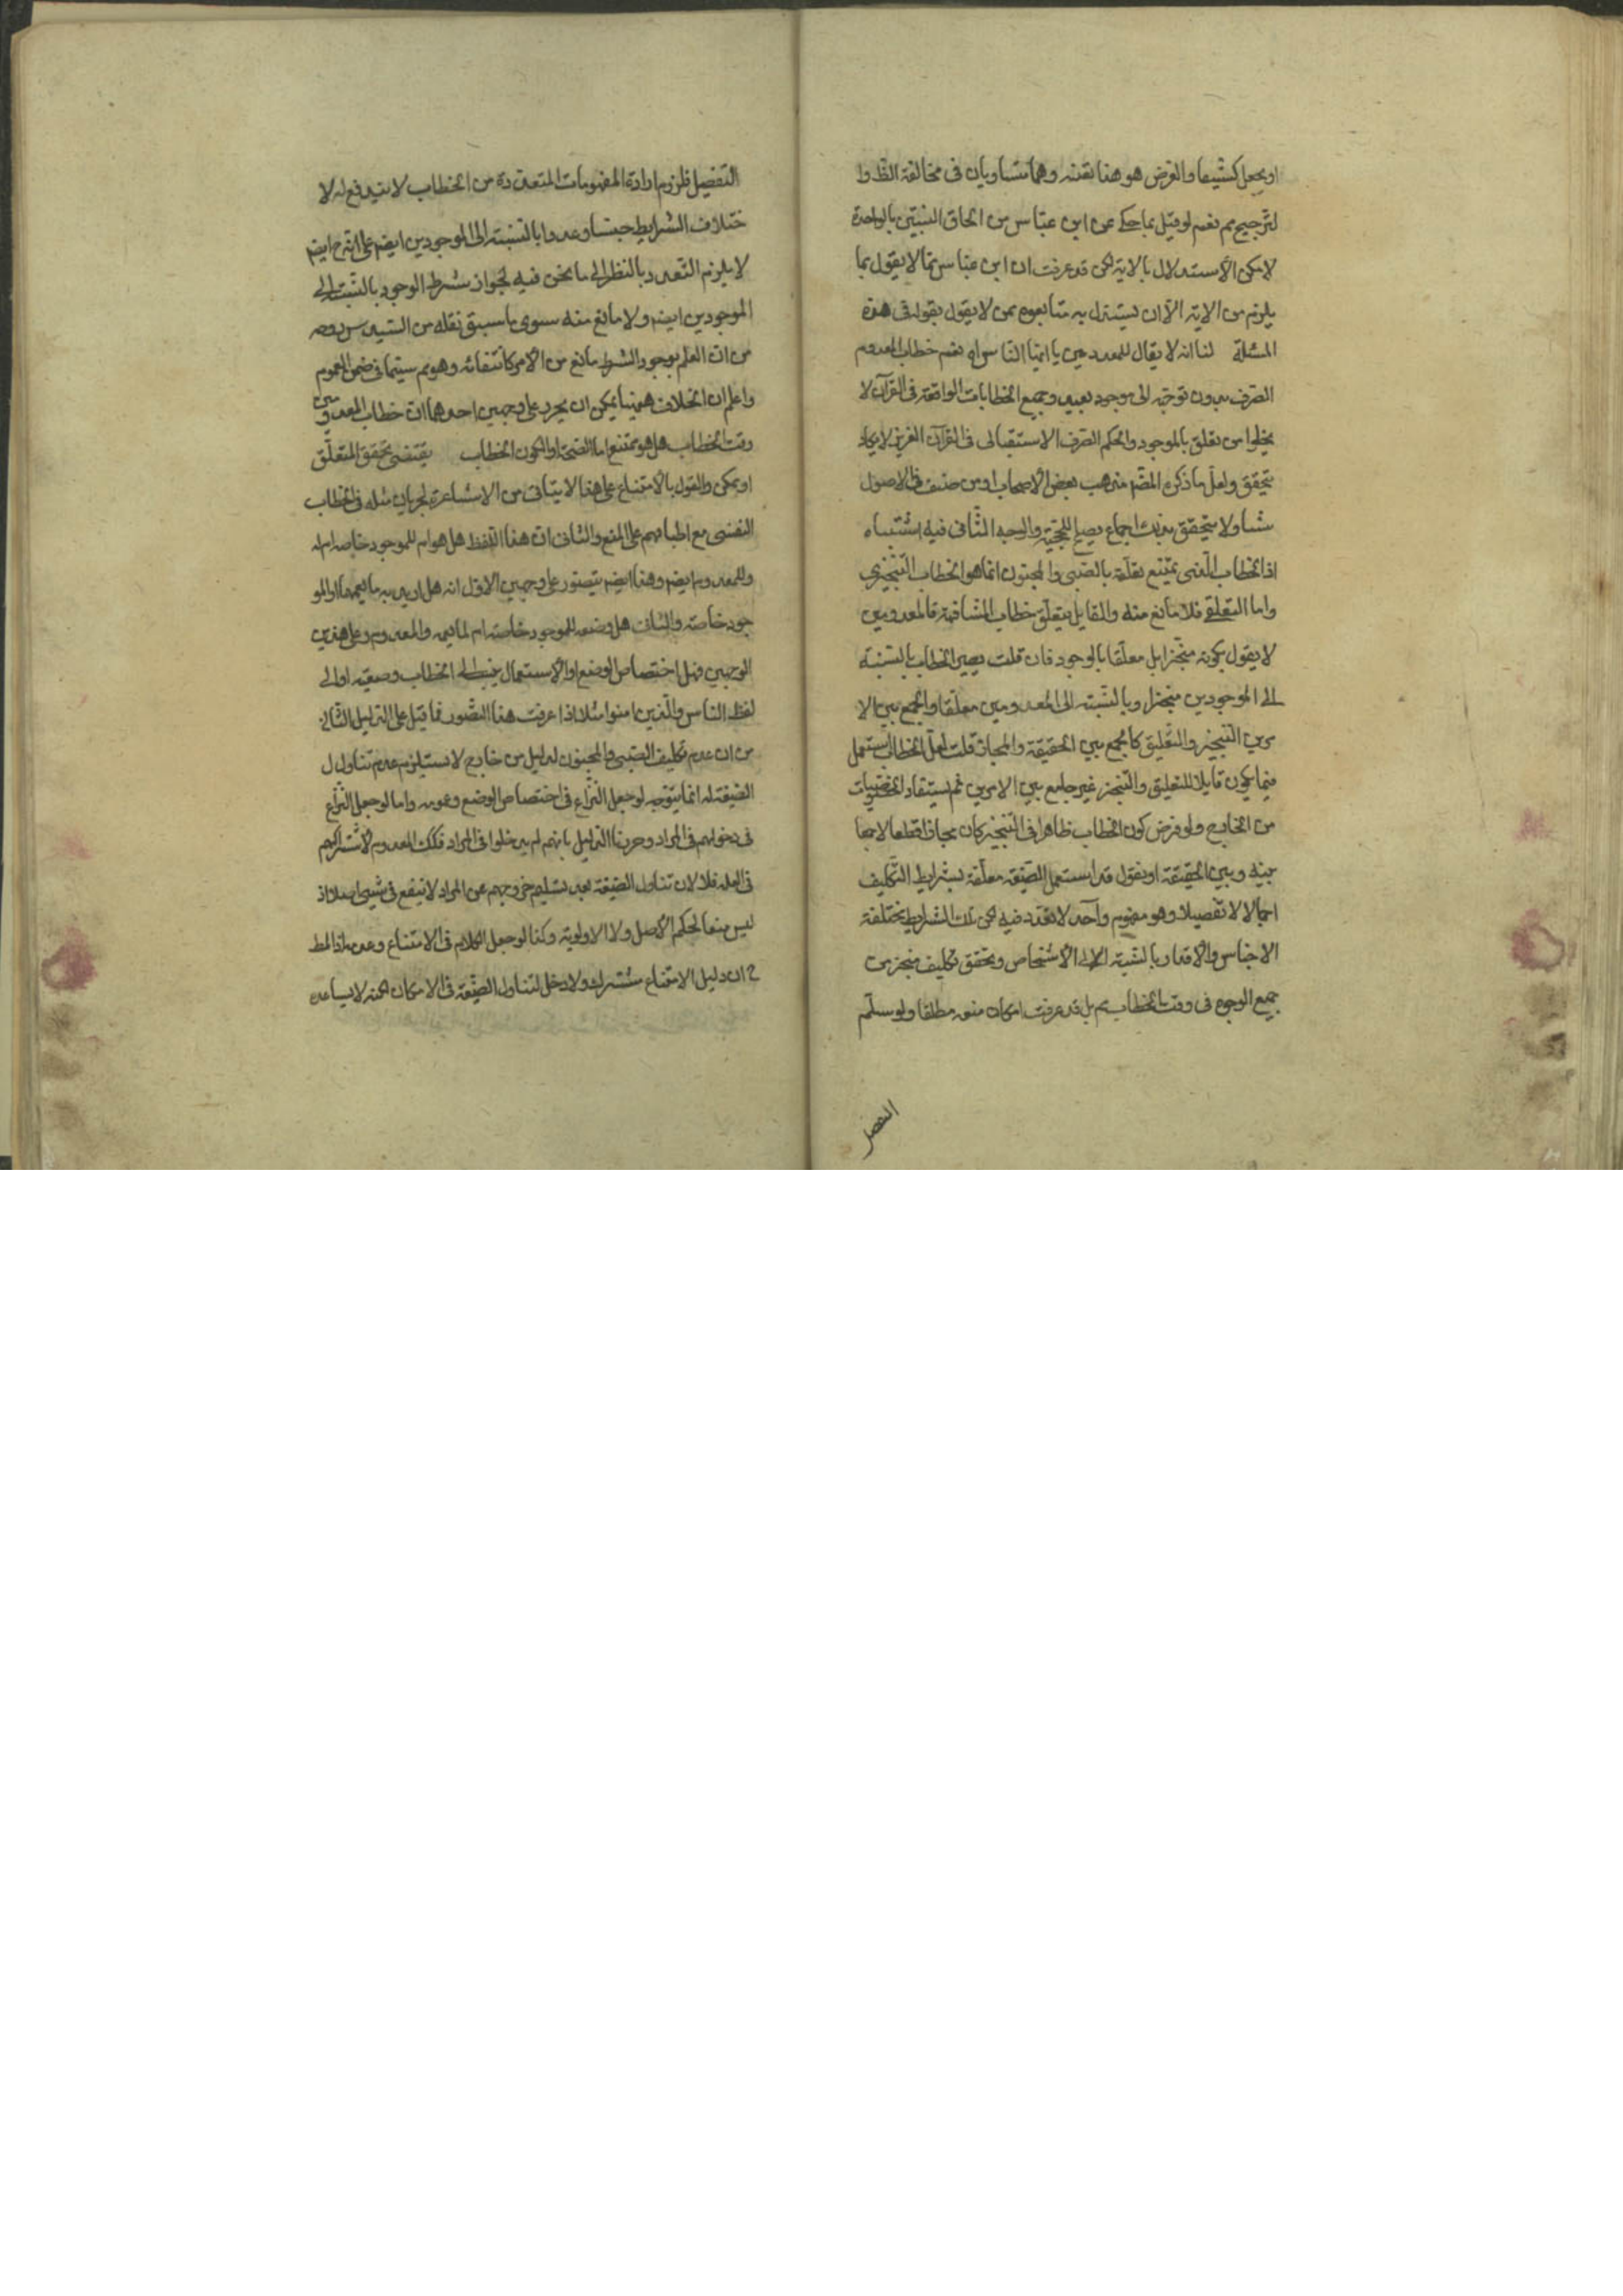 او يجعل كشيعا والفرض هو هنا بقدنه وهما متساويان فى مخالفة الظ وا
لترجيح مم نعم لو قيل بما حكى عن ابن عباس من الحاق البنتين بالواحدة
لامكن الاستدلال بالاية لكن قد عرفت ان ابن عباس مما لا يقول بما
يلزم من الاية الا ان يستدل به متابعوه ممن لا يقول بقوله فى هذه
المسئلة لنا انه لا يقال للمعدومين يا ايها الناس اه نعم خطاب المعدوم
الصرف بدون توجه الى موجود بعيد وجميع الخطابات الواقعة فى القرآن لا
يخلوا من تعلق بالموجود والحكم الصرف الاستقبالى فى القرآن العزيز لا يكاد
يتحقق ولعل ما ذكره المصّ مذهب بعض الاصحاب او من صنف فى الاصول
منا ولا يتحقق بذلك اجماع يصلح للحجية والوجه الثانى فيه اشتباه
اذ الخطاب الذى يمتنع تعلقه بالصبى والمجنون انما هو الخطاب التنجيزى
واما التعلقى فلا مانع منه والقايل بتعلق خطاب المشافهة بالمعدومين
لا يقول بكونه منجزا بل معلقا بالوجود فان قلت يصير الخطاب بالنسبة
الى الموجودين منجزا وبالنسبة الى المعدومين معلقا والجمع بين الا
مرين التنجيز والتعليق كالجمع بين الحقيقة والمجاز قلت لعل الخطاب استعمل
فيما يكون قابلا للتعليق والتنجيز غير جامع بين الامرين ثم يستفاد الخصوصيات
من الخارج ولو فرض كون الخطاب ظاهرا فى التنجيز كان مجازا قطعا لا جمعا
بينه وبين الحقيقة او نقول قد استعمل الصيغة معلقة بشرايط التكليف
اجمالا لا تفصيلا وهو مفهوم واحد لا تعدد فيه لكن تلك الشرايط مختلفة
الاجناس والاقدار بالنسبة الى الاشخاص وتحقق تكليف منجز من
جميع الوجوه فى وقت الخطاب مم بل قد عرفت امكان منعه مطلقا ولو سلم
التفصيل
التفصيل فلزوم ارادة المفهومات المتعددة من الخطاب لا يندفع له لا
ختلاف الشرايط جنسا وعددا بالنسبة الى الموجودين ايضا على انه ح ايضا
لا يلزم التعدد بالنظر الى ما نحن فيه لجواز شرط الوجود بالنسبة الى
الموجودين ايضا ولا مانع منه سوى ما سبق نقله من السيد
من ان العلم بوجود الشرط مانع من الامر كانتفائه وهو مم سيما فى ضمن العموم
واعلم ان الخلاف ههنا يمكن ان يحرر على وجهين احدهما ان خطاب المعدومين
وقت الخطاب هل هو ممتنع اما لقبحه او لكون الخطاب يقتضى تحقق المتعلق
او يمكن والقول بالامتناع على هذا لا يتاتى من الاشاعرة لجريان مثله فى الخطاب
النفسى مع اطباقهم على المنع والثانى ان هذا اللفظ هل هو ام للموجود خاصه ام له
وللمعدوم ايضا وهذا ايضا يتصور على وجهين الاول انه هل اريد به ما يعمهما او المو
جود خاصة والثانى هل وضعه للموجود خاصة ام لما يعمه والمعدوم وعلى هذين
الوجهين فهل اختصاص الوضع او الاستعمال ينظر الى الخطاب وصيغته او الى
لفظ الناس والذين امنوا مثلا اذا عرفت هذا التصور فما قيل على الدليل الثانى
من ان عدم تكليف الصبى والمجنون لدليل من خارج لا يستلزم عدم تناول ل
الصيغة له انما يتوجه لو جعل النزاع فى اختصاص الوضع وعمومه واما لو جعل النزاع
فى دخولهم فى المراد وحررنا الدليل بانهم لم يدخلوا فى المراد فكذلك المعدوم لاشتراكهم
فى العلة فلا لان تناول الصيغة بعد تسليم خروجهم عن المراد لا ينفع فى شيىء اصلا اذ
ليس منعا لحكم الاصل ولا الاولوية وكذا لو جعل الكلام فى الامتناع وعدمه اذ المط
ح ان دليل الامتناع مشترك ولا دخل لتناول الصيغة فى الامكان لكنه لا يساعده